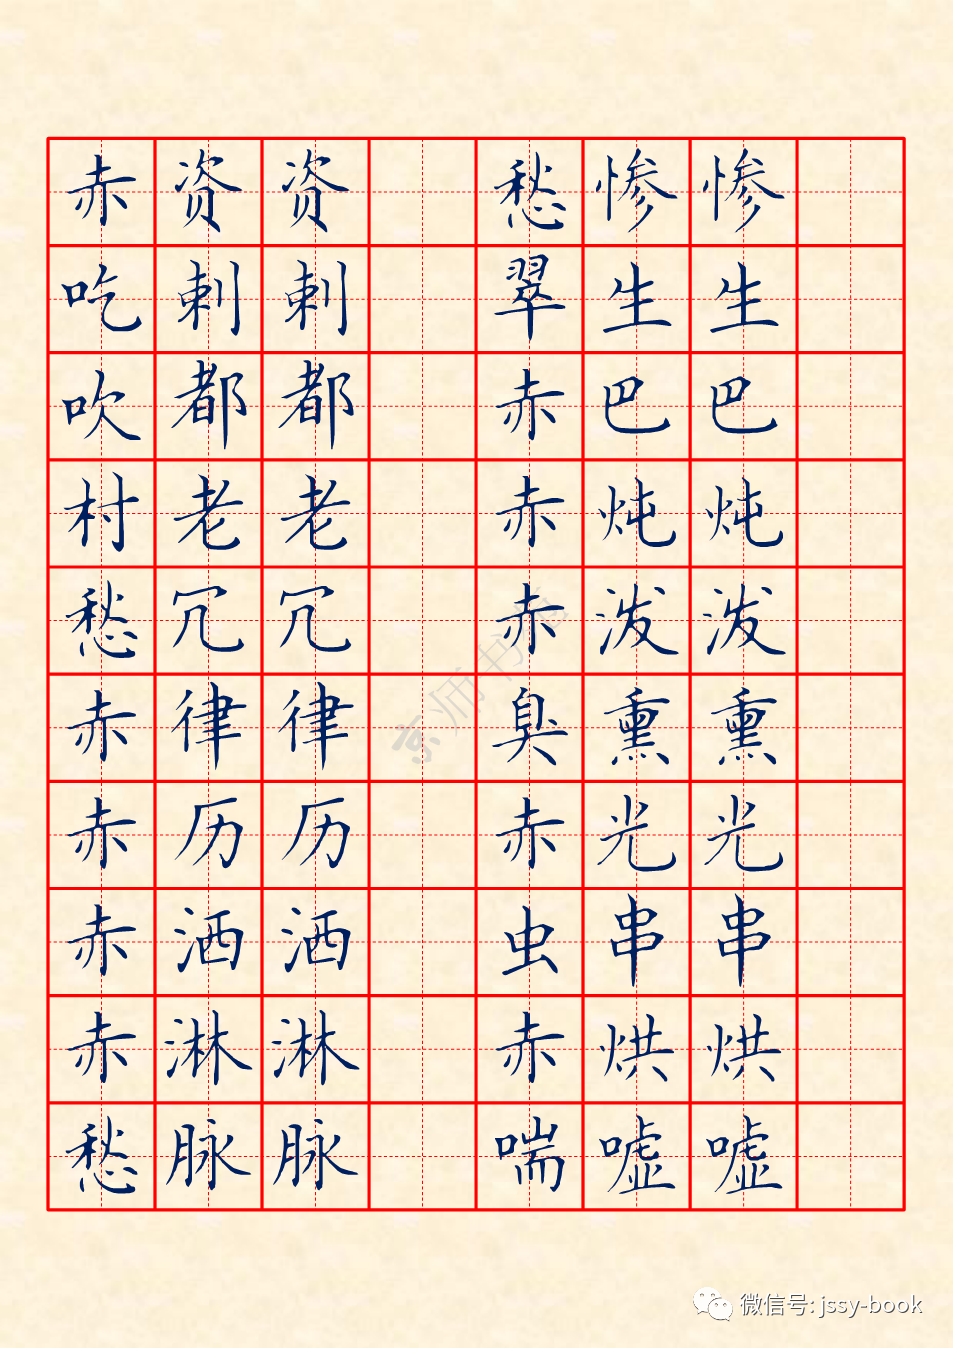 赤资资愁惨惨
吃刺刺翠生生
吹都都赤巴巴
村老老赤炖炖
愁冗冗赤泼泼
赤律律臭熏熏
赤历历赤光光
赤洒洒虫串串
赤淋淋赤烘烘
愁脉脉喘嘘嘘
京师书苑
微信号: jssy-book